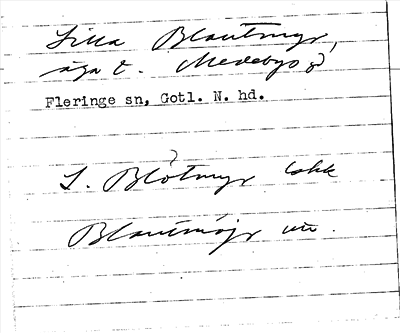 Lilla Blautmyr,
äga t. Medebys
Fleringe sn, Gotl. N. hd.
L. Blötmyr
Blautmyr